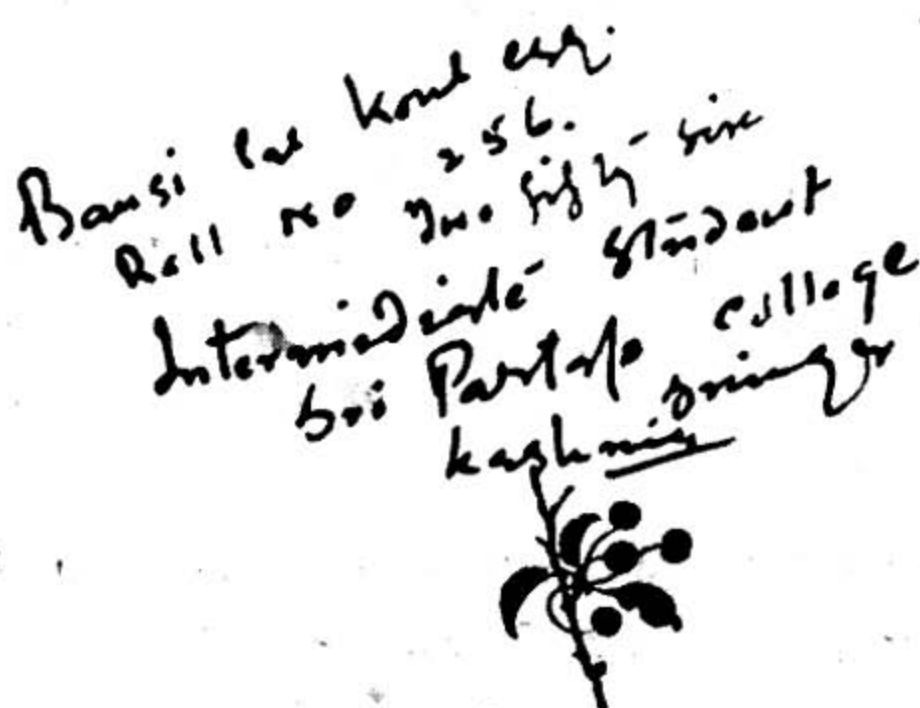 Bansi Lal Koul esq.
Roll no 256.
Two fifty six
Intermediate student
Sri Partap College
Srinagar
Kashmir